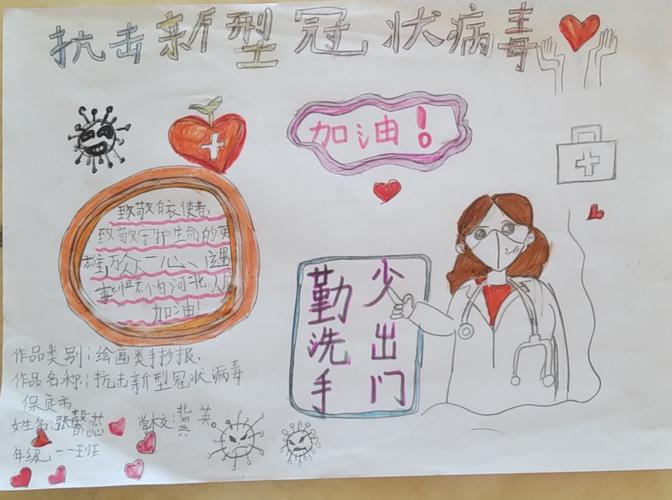 抗击新型冠状病毒
加油！
致敬白衣使者、
致敬守护生命的英
雄，万众一心、遇
河北人
加油！
少出门
勤洗手
作品类别：绘画类手抄报.
作品名称：抗击新型冠状病毒
保定市
姓名：张馨 学校：冀英
年级：一一班